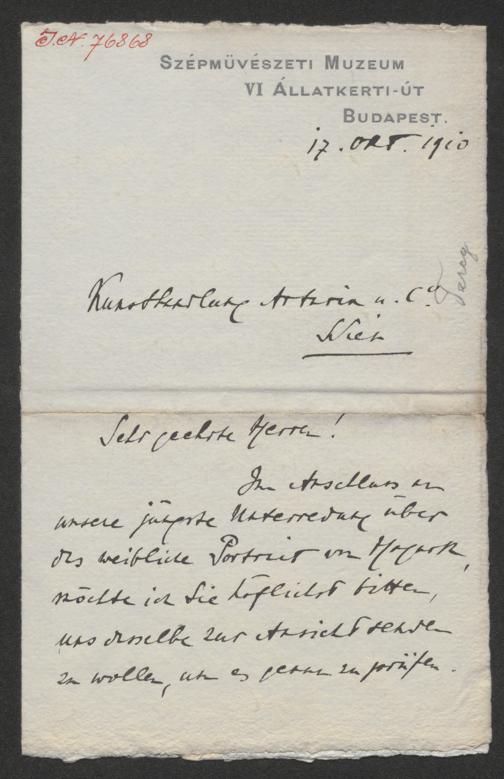 I.N. 76868
SZÉPMÜVÉSZETI MUZEUM
VI ÁLLATKERTI-ÚT
BUDAPEST.
17. OKT. 1910
Kunsthandlung Artaria u. Co
Wien
Sehr geehrte Herren!
Im Anschluss an
unsere jüngste Unterredung über
das weibliche Portrait von Hogarth,
möchte ich Sie höflichst bitten,
uns dasselbe zur Ansicht senden
zu wollen, um es genau zu prüfen.